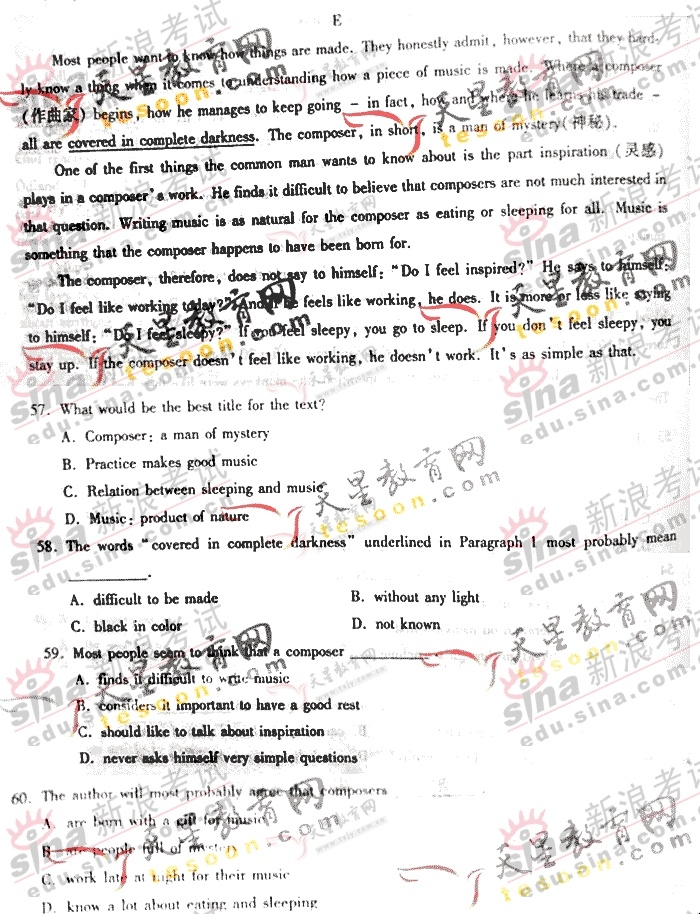 E
Most people want to know how things are made. They honestly admit, however, that they hard-
ly know a thing when it comes to understanding how a piece of music is made. Where a composer
(作曲家) begins, how he manages to keep going – in fact, how and where he learns his trade –
all are covered in complete darkness. The composer, in short, is a man of mystery(神秘).
One of the first things the common man wants to know about is the part inspiration (灵感)
plays in a composer's work. He finds it difficult to believe that composers are not much interested in
that question. Writing music is as natural for the composer as eating or sleeping for all. Music is
something that the composer happens to have been born for.
The composer, therefore, does not say to himself: "Do I feel inspired?" He says to himself:
"Do I feel like working today?" And if he feels like working, he does. It is more or less like saying
to himself: "Do I feel sleepy?" If you feel sleepy, you go to sleep. If you don't feel sleepy, you
stay up. If the composer doesn't feel like working, he doesn't work. It's as simple as that.
57. What would be the best title for the text?
A. Composer: a man of mystery
B. Practice makes good music
C. Relation between sleeping and music
D. Music: product of nature
58. The words "covered in complete darkness" underlined in Paragraph 1 most probably mean
________.
A. difficult to be made B. without any light
C. black in color D. not known
59. Most people seem to think that a composer ________.
A. finds it difficult to write music
B. considers it important to have a good rest
C. should like to talk about inspiration
D. never asks himself very simple questions
60. The author will most probably agree that composers
A. are born with a gift for music
B. are people full of mystery
C. work late at night for their music
D. know a lot about eating and sleeping
sina 新浪考试
edu.sina.com.cn
天星教育网
tesoon.com